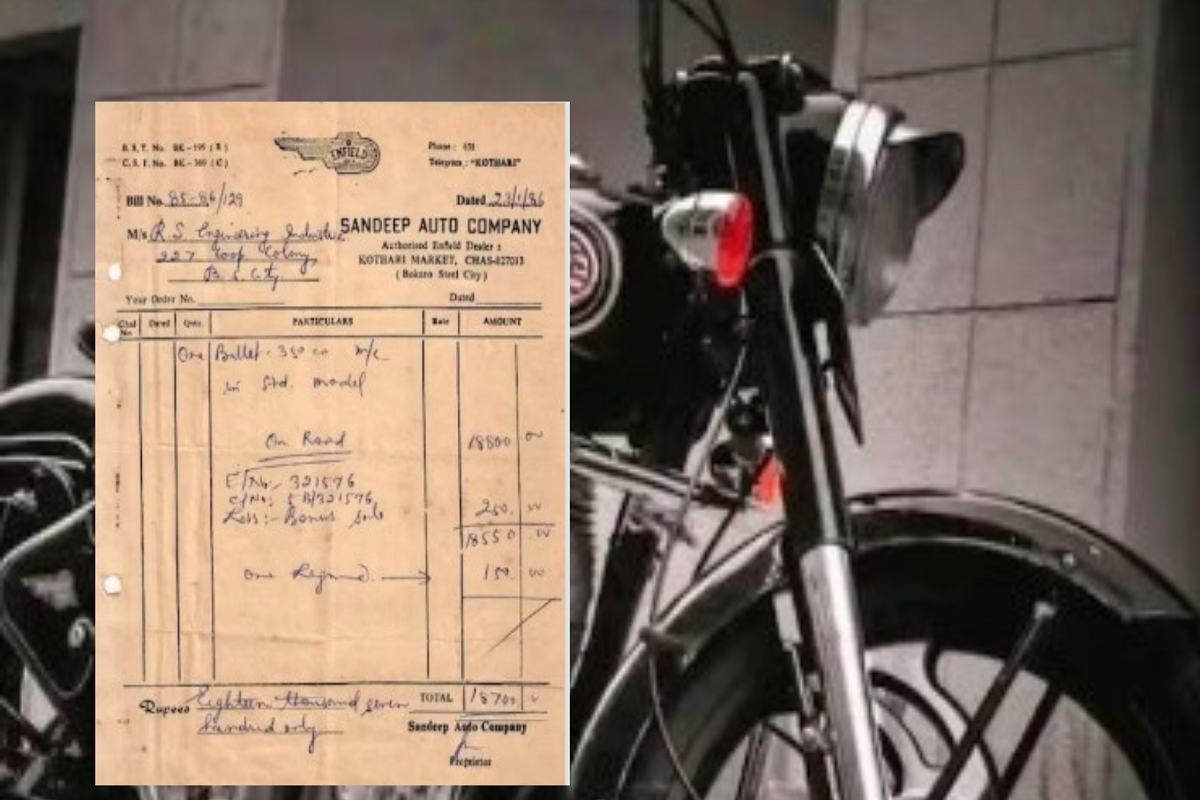 B.S.T. No. BK-195 (R)
C.S.T. No. BK-360 (C)
ENFIELD
Phone : 431
Telegram : "KOTHARI"
Bill No. 85-86/129
Dated 23/1/86
M/s R.S. Engineering Industries
227 Coop Colony,
B.S. City
SANDEEP AUTO COMPANY
Authorised Enfield Dealer :
KOTHARI MARKET, CHAS-827013
( Bokaro Steel City )
Your Order No.
Dated
Chal No. Dated Qnty. PARTICULARS Rate AMOUNT
One Bullet - 350 cc m/c
in Std. model
On Road 18800 00
E/No:- 321576
C/No: 5B/321576
Less:- Bonus 250. 00
18550 00
One 150 00
Rupees Eighteen thousand seven
hundred only
TOTAL 18700
Sandeep Auto Company
Proprietor